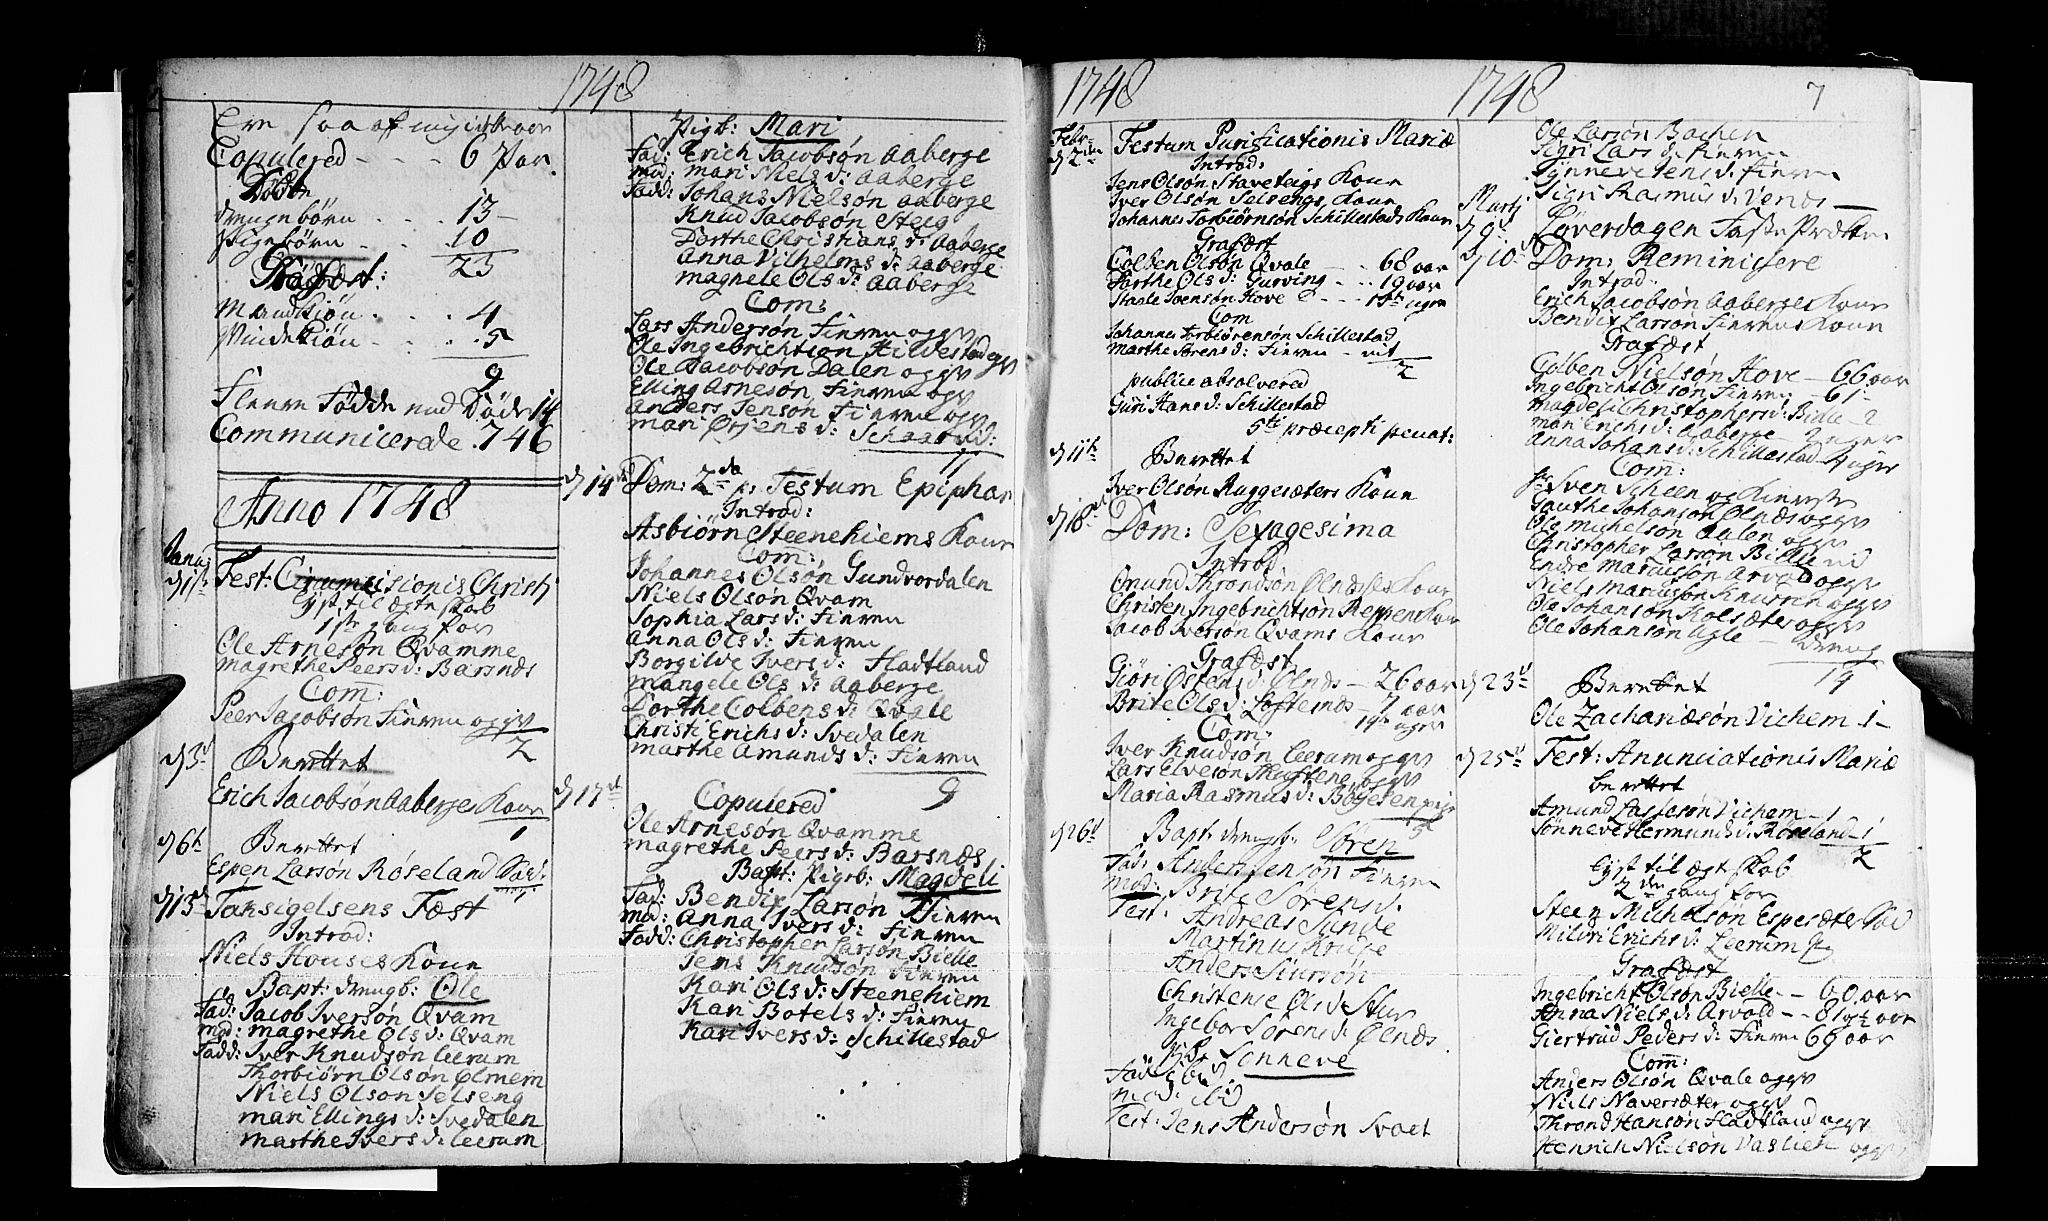 1748
Copulered - - - 6 Par.
Døbte
drengebørn . . . 13
Pigebørn . . . 10
23
Grafæst:
Mandkiøn . . . 4
Qvindekiøn . . . 5
9
Fleere Fødde end Døde 14
Communicerede . 746
Anno 1748
Janu:
d 1ste Fest: Circumcisionis Christi
Lyst til ægteskab
1ste gang for
Ole Arnesøn Qvamme
Magrethe Peers d: Barsnæs
Com:
Peer Jacobsøn Finren og gv
2
d 3d Berettet
Erich Jacobsøn Aaberges Kone
1
d 6t Berettet
Espen Larsøn Røseland
d 15d Taksigelsens Fæst
Introd:
Niels Houses Kone
Bapt: drengb: Ole
Fad: Jacob Iversøn Qvam
Mod: Magrethe Ols d: Qvam
Fadd: Iver Knudsøn Leerum
Thorbiørn Olsøn Ølmem
Niels Olson Selseng
Mari Ellings d: Svedalen
Marthe Ivers d: Leerum
Pigb: Mari
Fad: Erich Jacobsøn Aaberge
Mod: Mari Niels d: Aaberge
Fadd: Johans Nielsøn Aaberge
Knud Jacobsøn Steig
Dorthe Christians d: Aaberge
Anna Vilhelms d: Aaberge
Magnele Ols d: Aaberge
Com:
Lars Andersøn Finren og gv
Ole Ingebrichtsøn Hildestad og gv
Ole Jacobsøn Dalen og gv
Elling Arnesøn Finren og gv
Anders Jenson Finren og gv
Mari Ørjens d:
11
d 14de Dom: 2da p: Festum Epiphan
Introd:
Asbiørn Steenehiems Kone
Com:
Johannes Olsøn Gundvordalen
Niels Olsøn Qvam
Sophia Lars d: Finren
Anna Ols d: Finren
Borgilde Ivers d: Fladtland
Mangele Ols d: Aaberge
Dorthe Colbens d: Qvale
Christi Erichs d: Svedalen
Marthe Amunds d: Finren
9
d 17de Copulered
Ole Arnesøn Qvamme
Magrethe Peers d: Barsnæs
Bapt: Pigeb: Magdeli
Fad: Bendix Larsøn Finren
Mod: Anna Ivers d: Finren
Fadd: Christopher Larsøn Bielle
Jens Knudsøn Finren
Kari Ols d: Steenehiem
Kari Botels d: Finren
Kari Ivers d: Schillestad
1748
Febr:
d 2den Festum Purificationis Mariæ
Introd:
Jens Olsøn Staveteigs Kone
Iver Olsøn Selsengs Kone
Johannes Torbiørnsøn Schillestads Kone
Grafæst
Colben Olsøn Qvale - . 68 aar
Marthe Ols d: Gurving - . . 19 aar
Staale Ivensøn Hove
Com
Johannes Torbiørensøn Schillestad
Marthe Sørens d: Finren
2
publice absolvered
Guri Hans d: Schillestad
5ti præcepti peccat:
d 11te Berettet
Iver Olsøn Ruggesæters Kone
d 18de Dom: Sexagesima
Introd
Omund Throndsøn Ølnæses Kone
Christen Ingebrichtsøn Reppens Kone
Jacob Iversøn Qvams Kone
Grafæst
Giøri Østens d: Ølnæs - 26 aar
Brite Ols d: Loftesnæs - 7 aar
19 uger
Com:
Iver Knudsøn Leerum og gv
Lars Elvesøn Skustene og gv
Maria Rasmus d: Bøyesen
5
d 26t Bapt: drengeb: Søren
Fad: Anders Jensøn Finren
Mod: Brite Sørens d:
Test: Andreas Sunde
Martinus Kruse
Anders Siursøn
Christense Ols d: Stur
Ingebor Sørens d: Ølnæs
Pigb: Sønneve
Fad: ibid
Mod: ibid
Test: Jens Andersøn Svaet
1748 7
Ole Larsøn Bachen
Sigri Lars d: Finren
Synneve Jens d: Finren
Sigri Rasmus d: Vends
Martj
d 9d Løverdagen
d 10 Dom: Reminiscere
Introd.
Erich Jacobsøn Aaberges Kone
Bendix Larsøn Finrens Kone
Grafæst
Colben Nielsøn Hove - 66 aar
Ingebricht Olsøn Finren - 61
Magdeli Christophers d: Bielle - 2
Mari Erichs d: Aaberge - 2 uger
Anna Johans d: Schillestad - 4 uger
Com:
Sven Scheen og
Gauthe Johansøn Ølnæs og gv
Ole Michelsøn Dalen og gv
Christopher Larsøn Bielle
Endre Marcusøn Arvold og gv
Niels Marcusøn Knurren og gv
Ole Johansøn Kolsæter og gv
Ole Johansøn Ugle - dreng
19
d 23d Berettet
Ole Zachariæsøn Vichem 1
d 25d Fest: Anunciationis Mariæ
berettet
Amund Lassesøn Vichem - 1
Sønneve Hermunds d: Røseland - 1
2
Lyst til ægtskab
2den gang for
Steen Michelsøn Espesæter
Mildri Erichs d: Leerum
Grafæst
Ingebricht Olsøn Bielle - - 60 aar
Anna Niels d: Arvold - - 81 1/2 aar
Giertrud Peders d: Finren 69 aar
Com:
Anders Olsøn Qvale og gv
Niels Naversæter og gv
Thrond Hansøn Fladtland og gv
Henrich Nielsøn Vaslien og gv